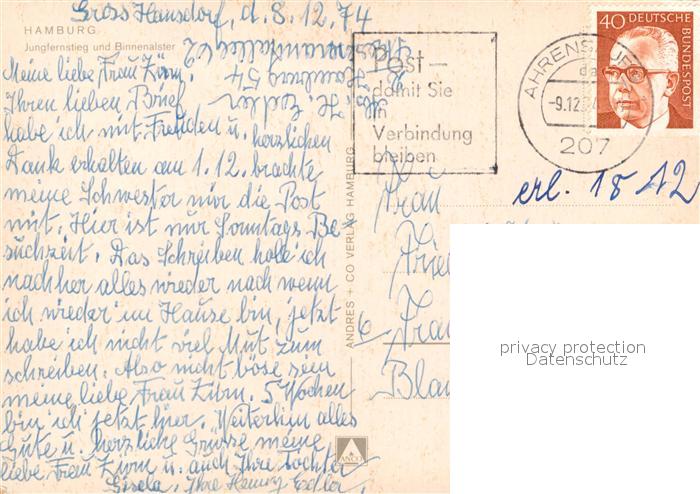 Gross Hansdorf, d. 8.12.74
HAMBURG
Jungfernstieg und Binnenalster
Meine liebe Frau Zirn.
Ihren lieben Brief
habe ich mit Freuden u. herzlichen
Dank erhalten am 1.12. brachte
meine Schwester mir die Post
mit. Hier ist nur Sonntags Be-
suchzeit. Das Schreiben hole ich
nachher alles wieder nach wenn
ich wieder im Hause bin, jetzt
habe ich nicht viel Mut zum
schreiben. Also nicht böse sein
meine liebe Frau Zirn. 5 Wochen
bin ich jetzt hier. Weiterhin alles
Gute u. herzliche Grüsse meine
liebe Frau Zirn u. auch Ihre Tochter
Gisela, Ihre Henny Edler.
Edler
2 Hamburg 54
62
Post –
damit Sie
in
Verbindung
bleiben
AHRENSBURG
-9.12.74
207
40 DEUTSCHE
BUNDESPOST
erl. 18 12
Frau
6
Bla
ANDRES + CO VERLAG HAMBURG
ANCO
privacy protection
Datenschutz